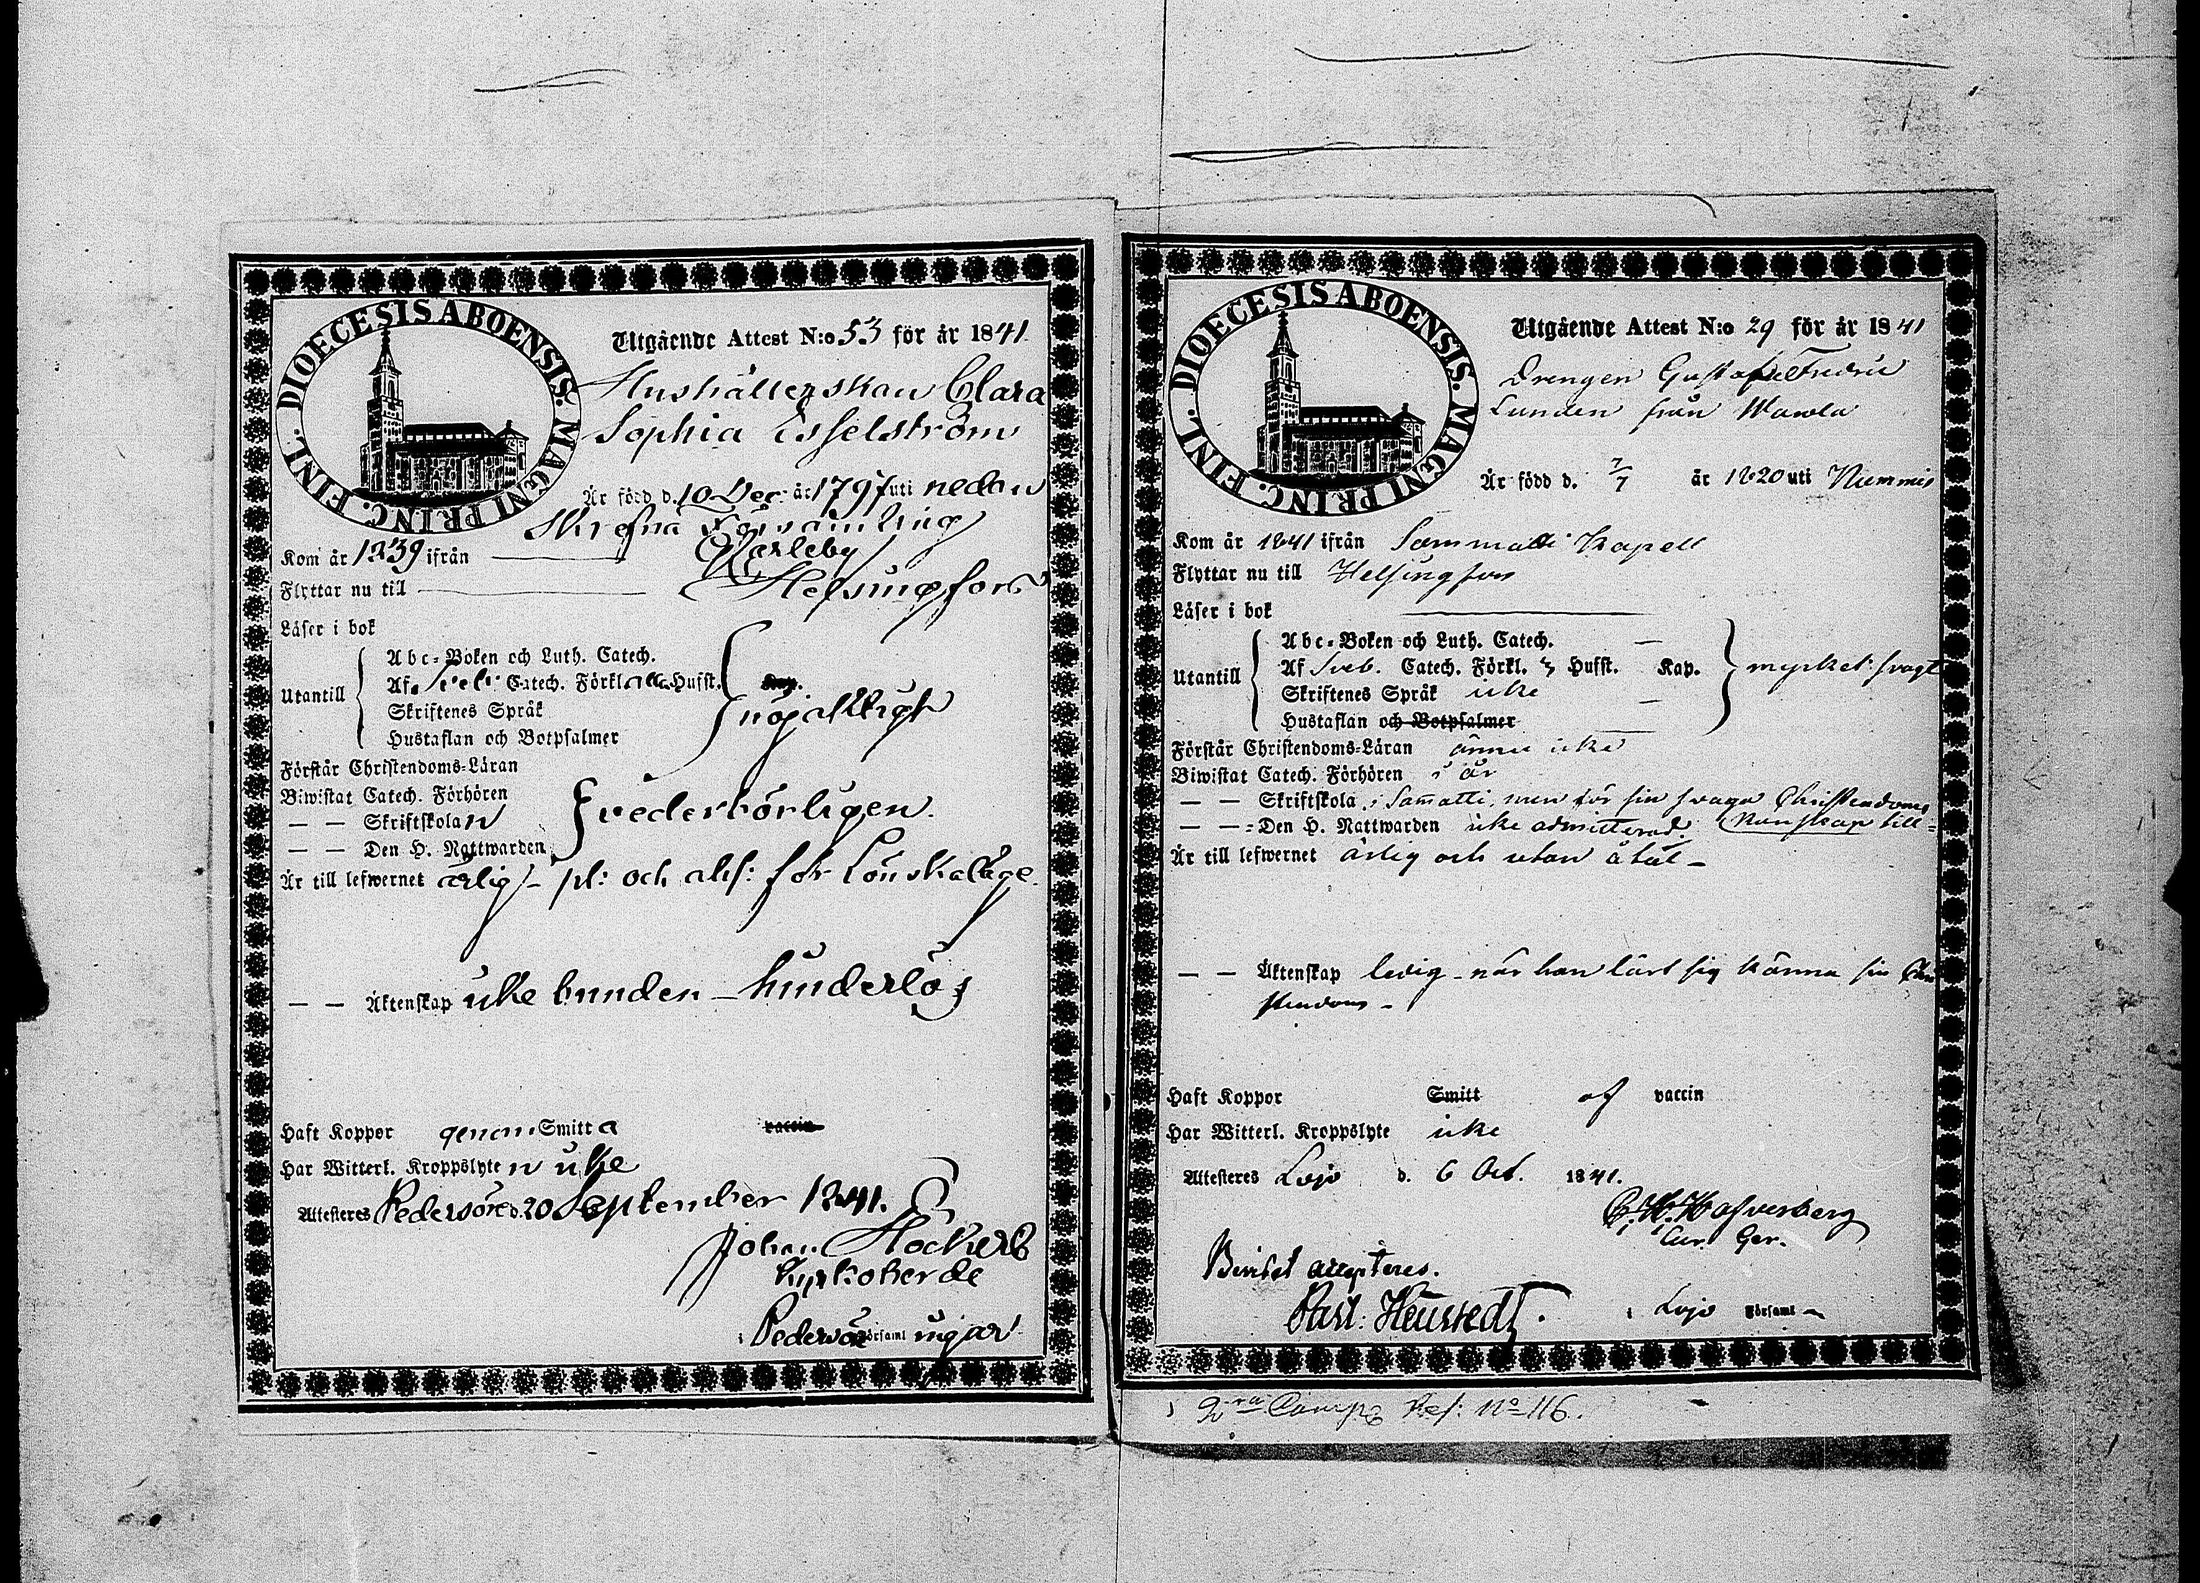 DIOECESIS ABOENSIS. MAGNI PRINC. FINL.
Utgående Attest N:o 53 för år 1841.
Hushållerskan Clara
Sophia Esselström
Är född d. 10 Dec: år 1797 uti nedan
skrefna Församling
Kom år 1839 ifrån Carleby
Flyttar nu till Helsingfors
Läser i bok
Utantill
Abc-Boken och Luth. Catech.
Af Sveb: Catech. Förkl. Husst. Kap.
Skriftenes Språk
nöjaktligt
Hustaflan och Botpsalmer
Förstår Christendoms-Läran
Biwistat Catech. Förhören
— — Skriftskolan vederbörligen.
— — Den H. Nattwarden
Är till lefwernet ärlig
— — Äktenskap icke bunden — hinderlös
Haft Koppor genom Smitta vaccin
Har Witterl. Kroppslyten icke
Attesteres Pedersöre d. 20 September 1841.
Johan
Kyrkoherde
i Pedersöre Församlingar
DIOECESIS ABOENSIS. MAGNI PRINC. FINL.
Utgående Attest N:o 29 för år 1841
Drengen Gustaf Fredric
Lunden från
Är född d. 7/7 år 1820 uti Nummis
Kom år 1841 ifrån Sammatti Kapell
Flyttar nu till Helsingfors
Läser i bok
Utantill
Abc-Boken och Luth. Catech. —
Af Sveb. Catech. Förkl. Husst. Kap. mycket svagt
Skriftenes Språk icke —
Hustaflan och Botpsalmer
Förstår Christendoms-Läran ännu icke
Biwistat Catech. Förhören i år
— — Skriftskola i Sammatti, men för sin svaga Christendoms
— — Den H. Nattwarden icke admitterad. Kunskap till-
Är till lefwernet ärlig och utan åtal —
— — Äktenskap ledig — när han lärt sig känna sin Chri
stendom —
Haft Koppor Smitt af vaccin
Har Witterl. Kroppslyte icke
Attesteres Lojo d. 6 Oct. 1841.
Hafverberg
Cur. Ger.
Beviset accepteres.
i Lojo Församl
Ref: No 116.